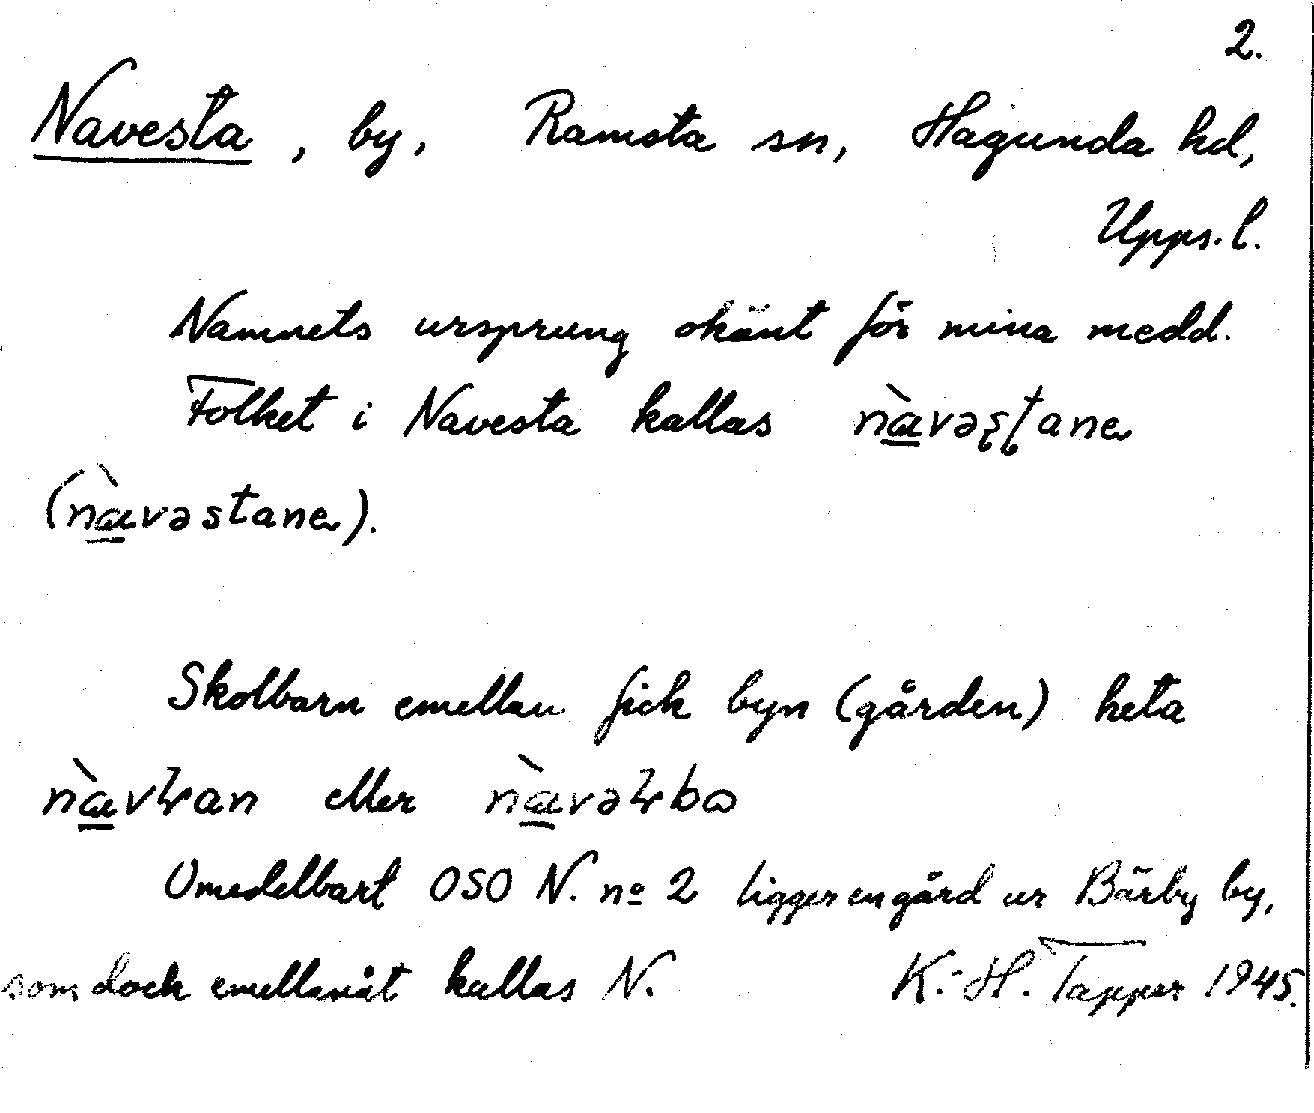 2.
Navesta, by, Ramsta sn, Hagunda hd,
Upps. l.
Namnets ursprung okänt för mina medd.
Folket i Navesta kallas
Skolbarn emellan fick byn (gården) heta
eller
Omedelbart OSO N. nº 2 ligger en gård ur Bärby by,
som dock emellanåt kallas N. K.-H. Tapper 1945.